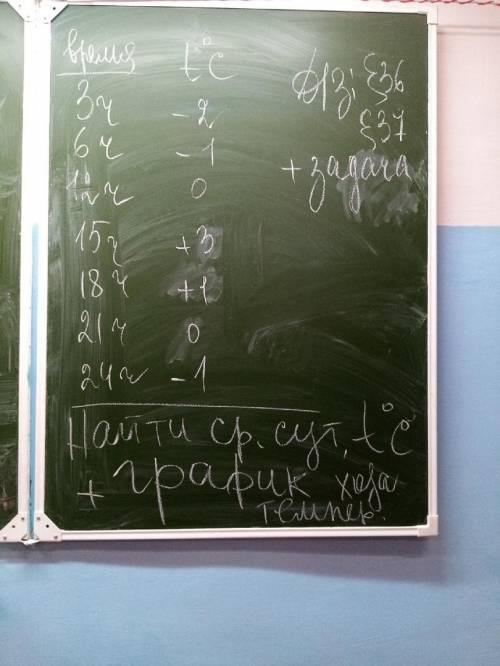 время t°C
3ч -2
6ч -1
12ч 0
15ч +3
18ч +1
21ч 0
24ч -1
Д/з; §36
§37
+ задача
Найти ср. сут. t°C
+ график хода
темпер.